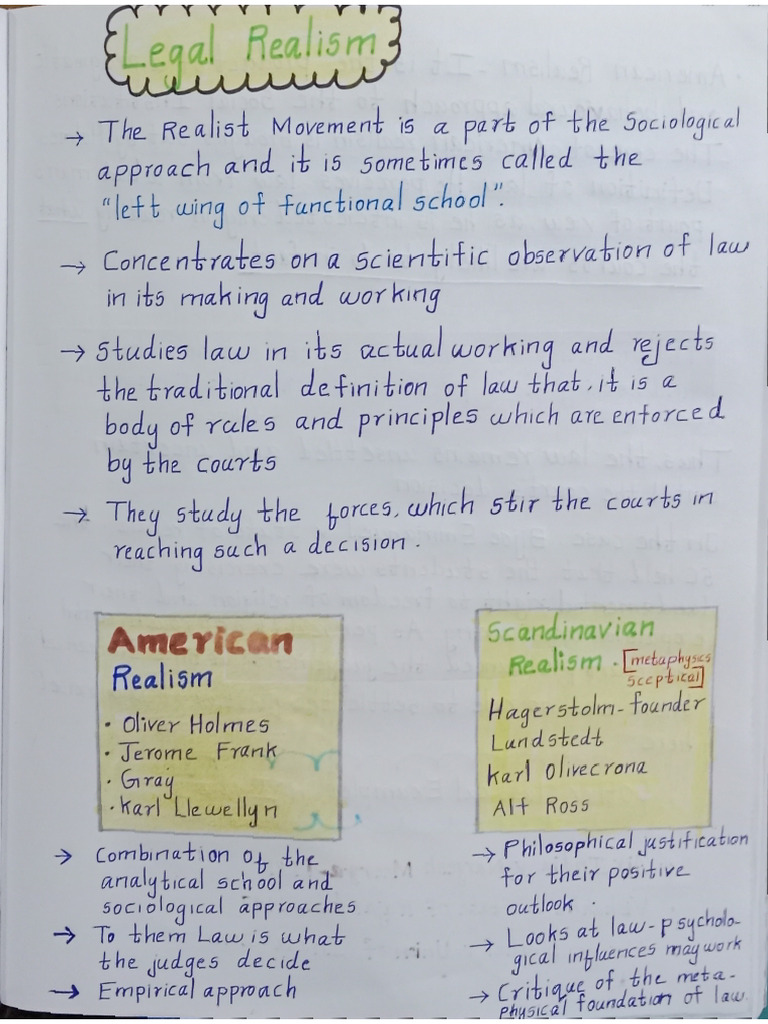 Legal Realism
→ The Realist Movement is a part of the Sociological
approach and it is sometimes called the
"left wing of functional school".
→ Concentrates on a scientific observation of law
in its making and working
→ Studies law in its actual working and rejects
the traditional definition of law that, it is a
body of rules and principles which are enforced
by the courts
→ They study the forces, which stir the courts in
reaching such a decision.
American
Realism
• Oliver Holmes
• Jerome Frank
• Gray
• Karl Llewellyn
→ Combination of the
analytical school and
sociological approaches
→ To them Law is what
the judges decide
→ Empirical approach
Scandinavian
Realism - [metaphysics
sceptical]
Hagerstolm - founder
Lundstedt
Karl Olivecrona
Alf Ross
→ Philosophical justification
for their positive
outlook.
→ Looks at law-psycholo-
gical influences may work
→ Critique of the meta-
physical foundation of law.